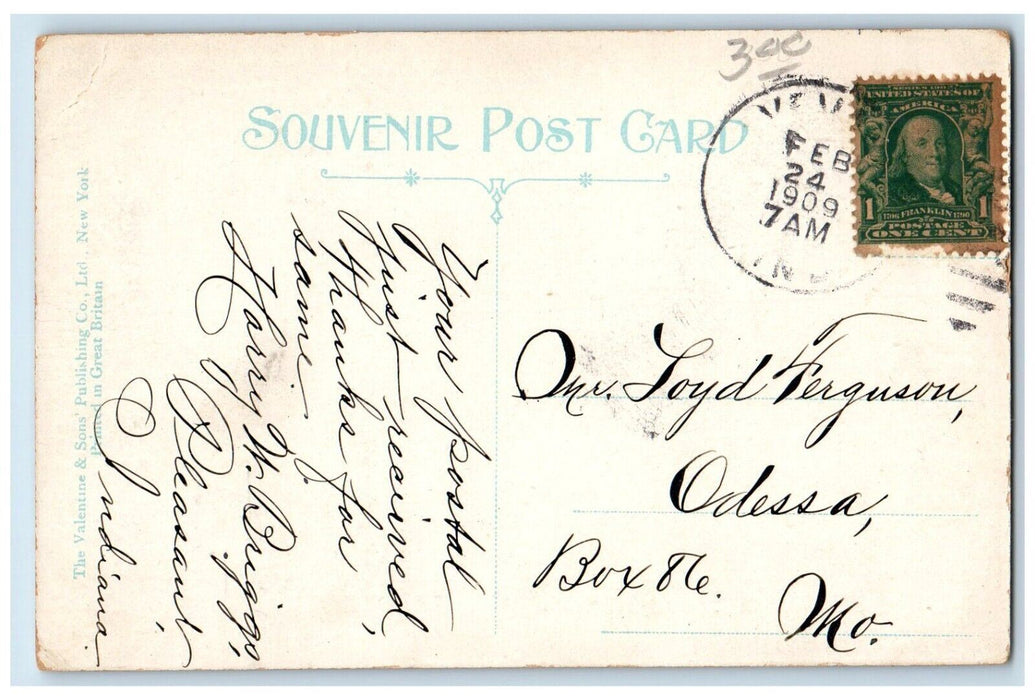 300
SOUVENIR POST CARD
FEB
24
1909
7AM
IND
SERIES 1902
UNITED STATES OF
AMERICA
1
1706 FRANKLIN 1790
1
POSTAGE
ONE CENT
Your postal
just received,
thanks for
same.
Harry W. Briggs,
Pleasant,
Indiana.
The Valentine & Sons' Publishing Co., Ltd., New York
Printed in Great Britain
Mr. Loyd Ferguson,
Odessa,
Box 86.
Mo.